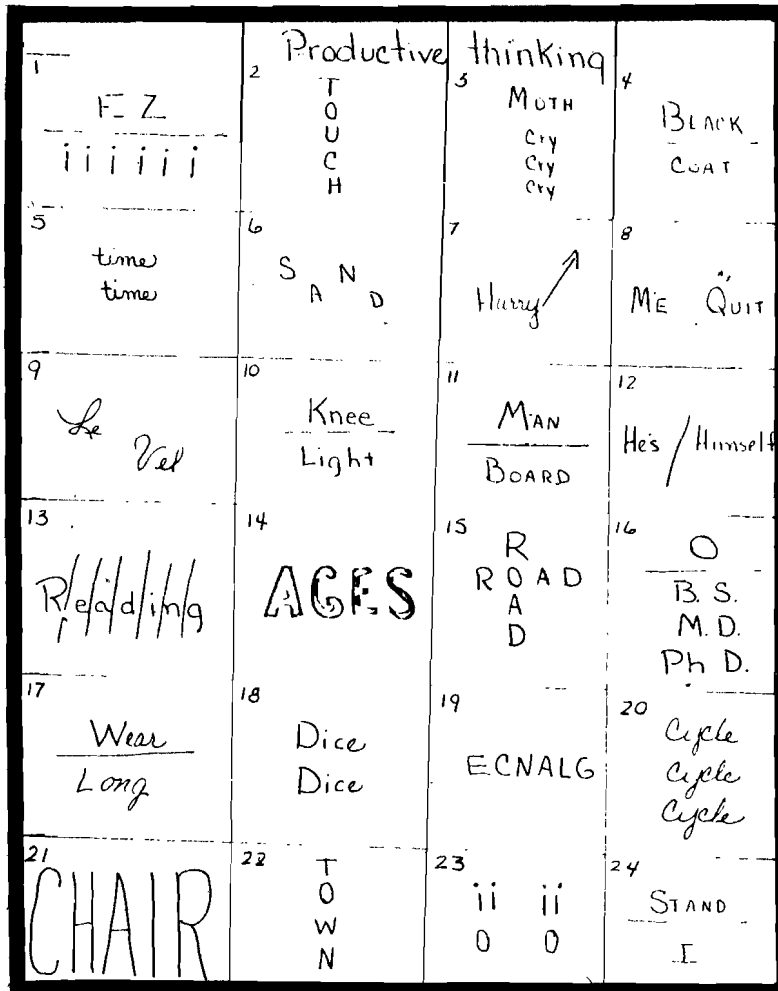 Productive thinking
1
FEZ
i i i i i i
2
T
O
U
C
H
3
MOTH
Cry
Cry
Cry
4
BLACK
COAT
5
time
time
6
S A N D
7
Hurry
8
ME QUIT
9
Le
Vel
10
Knee
Light
11
MAN
BOARD
12
He's / Himself
13
R/e/a/d/i/n/g
14
AGES
15
R
ROAD
A
D
16
O
B.S.
M.D.
Ph D.
17
Wear
Long
18
Dice
Dice
19
ECNALG
20
Cycle
Cycle
Cycle
21
CHAIR
22
T
O
W
N
23
ii ii
O O
24
STAND
I